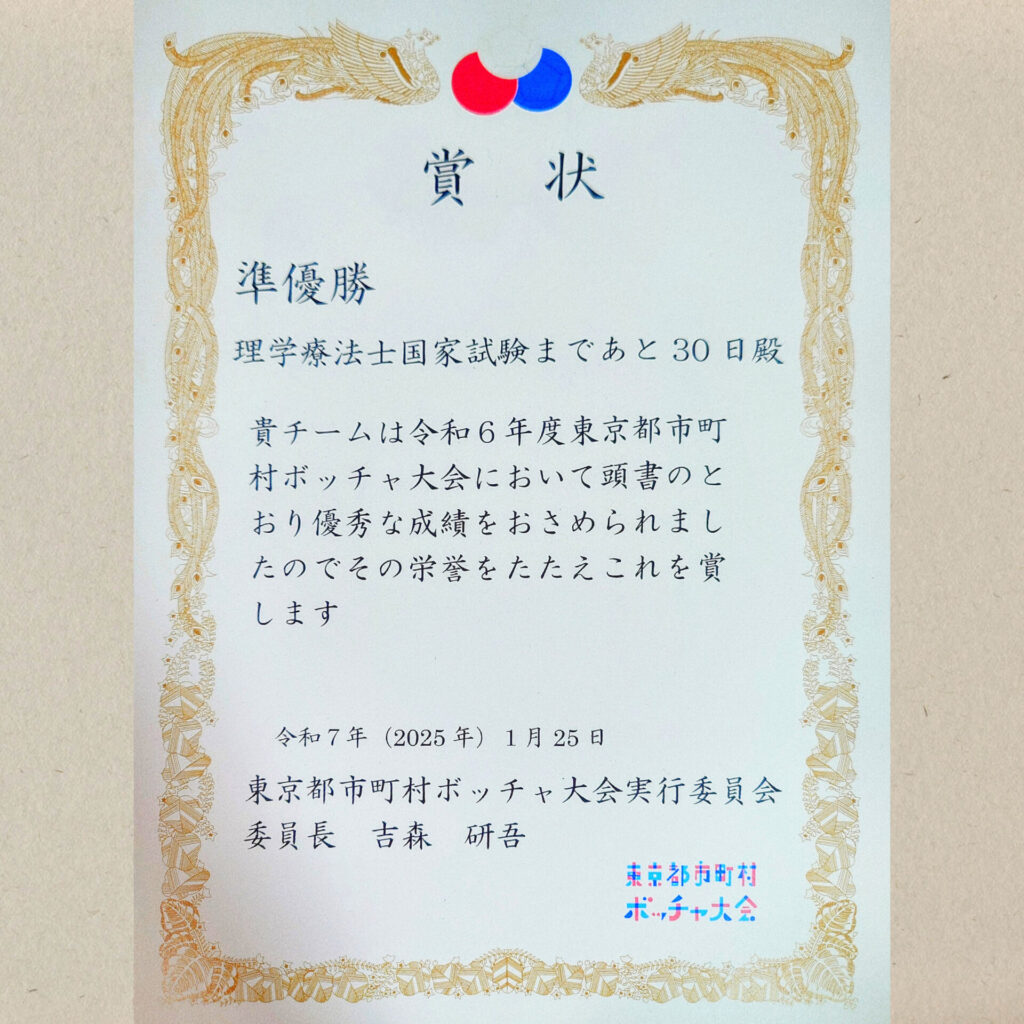 賞状
準優勝
理学療法士国家試験まであと30日殿
貴チームは令和6年度東京都市町
村ボッチャ大会において頭書のと
おり優秀な成績をおさめられまし
たのでその栄誉をたたえこれを賞
します
令和7年（2025年）1月25日
東京都市町村ボッチャ大会実行委員会
委員長　吉森　研吾
東京都市町村
ボッチャ大会